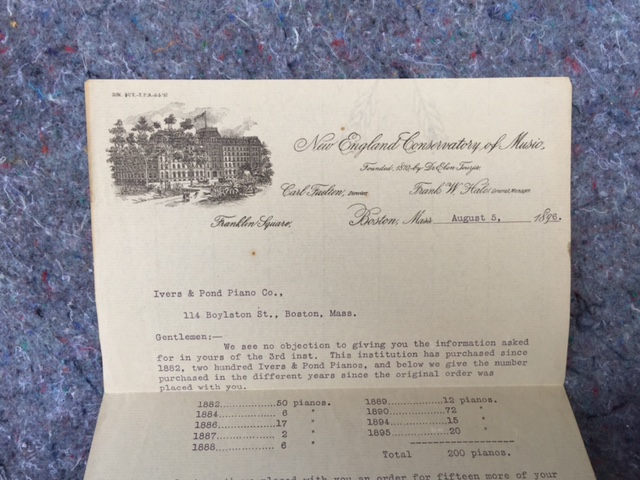 New England Conservatory of Music.
Founded, 1853, by Dr. Eben Tourjée
Carl Faelten, Director. Frank W. Hale, General Manager
Franklin Square,
Boston, Mass August 5, 1896.
Ivers & Pond Piano Co.,
114 Boylston St., Boston, Mass.
Gentlemen:—
We see no objection to giving you the information asked
for in yours of the 3rd inst. This institution has purchased since
1882, two hundred Ivers & Pond Pianos, and below we give the number
purchased in the different years since the original order was
placed with you.
1882..............50 pianos. 1889..............12 pianos.
1884.............. 6 " 1890..............72 "
1886..............17 " 1894..............15 "
1887.............. 2 " 1895..............20 "
1888.............. 6 "
Total 200 pianos.
placed with you an order for fifteen more of your